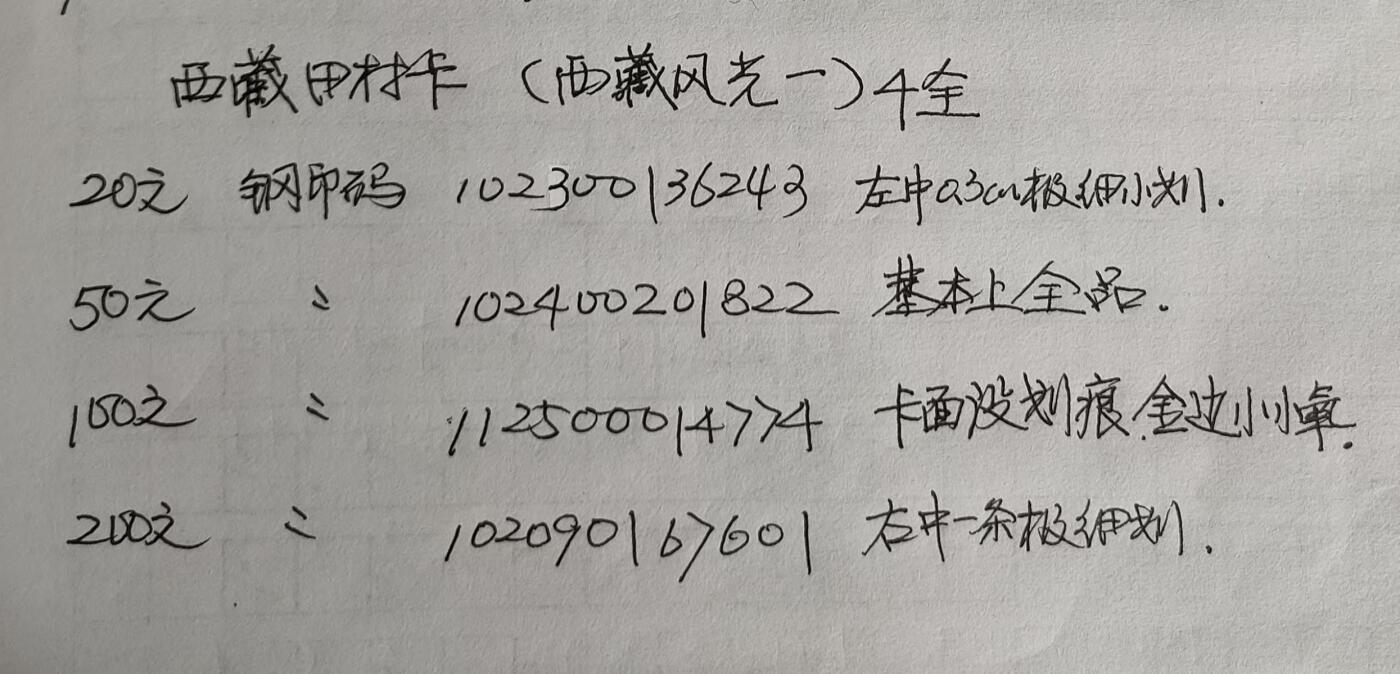 西藏田村卡（西藏风光一）4全
20元 钢印码 102300136243 左中0.3cm极细小划.
50元 〃 102400201822 基本上全品.
100元 〃 112500014774 卡面没划痕.金边小小氧.
200元 〃 102090167601 右中一条极细划.